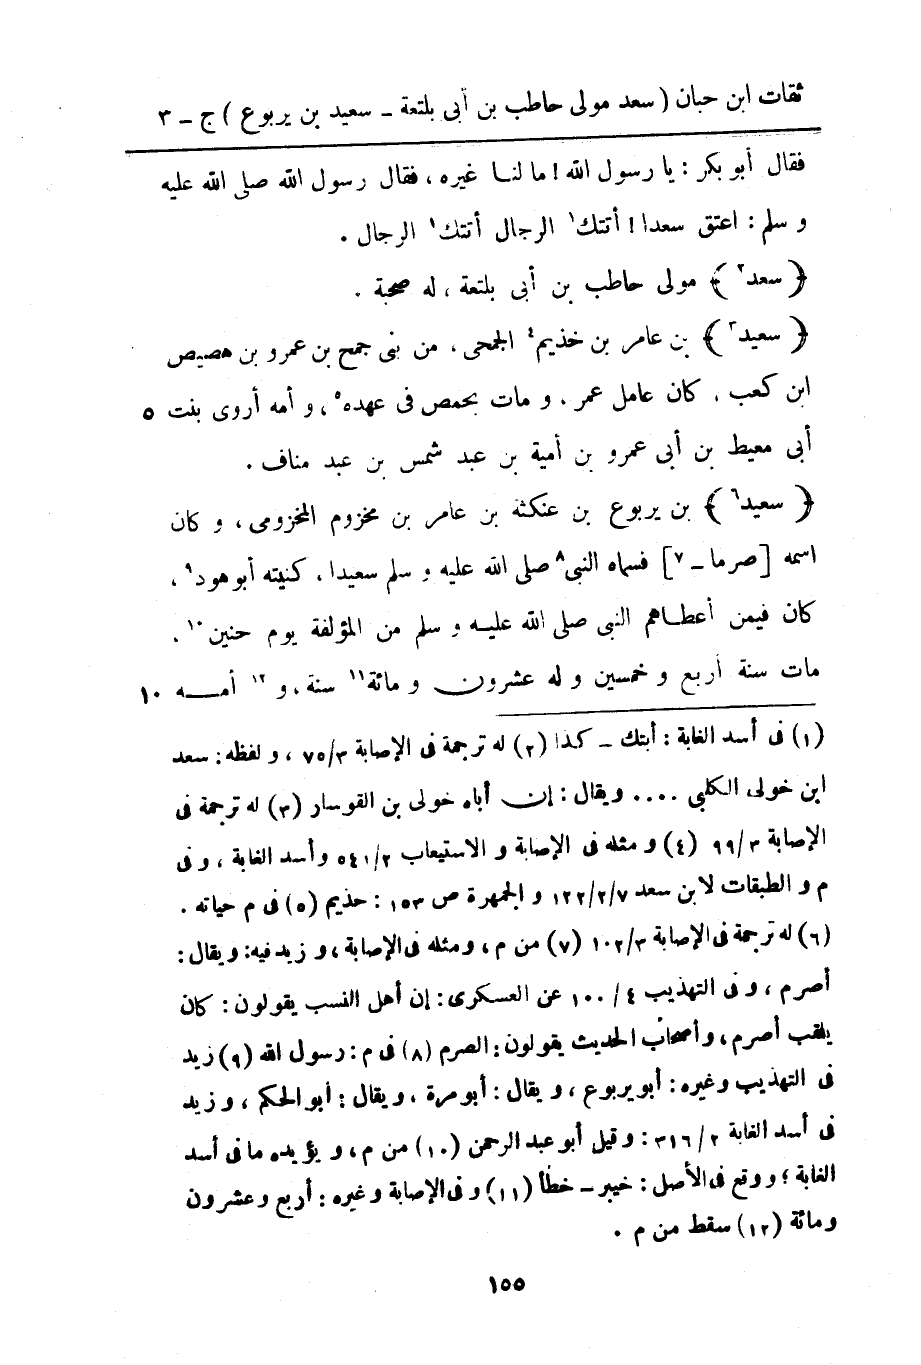 ثقات ابن حبان ( سعد مولى حاطب بن أبى بلتعة ـ سعيد بن يربوع ) ج ـ ٣
فقال أبو بكر : يا رسول الله ! ما لنا غيره ، فقال رسول الله صلى الله عليه
و سلم : اعتق سعدا ! أتتك١ الرجال أتتك١ الرجال .
﴿ سعد٢ ﴾ مولى حاطب بن أبى بلتعة ، له صحبة .
﴿ سعيد٣ ﴾ بن عامر بن خذيم٤ الجمحى ، من بنى جمح بن عمرو بن هصيص
ابن كعب ، كان عامل عمر . و مات بحمص فى عهده٥ ، و أمه أروى بنت ٥
أبى معيط بن أبى عمرو بن أمية بن عبد شمس بن عبد مناف .
﴿ سعيد٦ ﴾ بن يربوع بن عنكثة بن عامر بن مخزوم المخزومى ، و كان
اسمه [ صرما ـ ٧ ] فسماه النبى٨ صلى الله عليه و سلم سعيدا ، كنيته أبو هود٩ ،
كان فيمن أعطاهم النبى صلى الله عليه و سلم من المؤلفة يوم حنين١٠ .
مات سنة أربع و خمسين و له عشرون و مائة١١ سنة ، و ١٢ أمه ١٠
(١) فى أسد الغابة : أبتك ـ كذا (٢) له ترجمة فى الإصابة ٧٥/٣ ، و لفظه : سعد
ابن خولى الكلبى .... ويقال : إن أباه خولى بن القوسار (٣) له ترجمة فى
الإصابة ٩٩/٣ (٤) و مثله فى الإصابة و الاستيعاب ٥٤١/٢ وأسد الغابة ، و فى
م و الطبقات لابن سعد ١٢٢/٢/٧ و الجمهرة ص ١٥٣ : حذيم (٥) فى م حياته .
(٦) له ترجمة فى الإصابة ١٠٢/٣ (٧) من م ، و مثله فى الإصابة ، و زيد فيه : و يقال :
أصرم ، و فى التهذيب ٤ / ١٠٠ عن العسكرى : إن أهل النسب يقولون : كان
يلقب أصرم ، و أصحاب الحديث يقولون : الصرم (٨) فى م : رسول الله (٩) زيد
فى التهذيب وغيره : أبو يربوع ، و يقال : أبو مرة ، و يقال : أبو الحكم ، و زيد
فى أسد الغابة ٣١٦/٢ : وقيل أبو عبد الرحمن (١٠) من م ، و يؤيده ما فى أسد
الغابة ؛ ووقع فى الأصل : خيبر ـ خطأ (١١) و فى الإصابة وغيره : أربع وعشرون
ومائة (١٢) سقط من م .
١٥٥